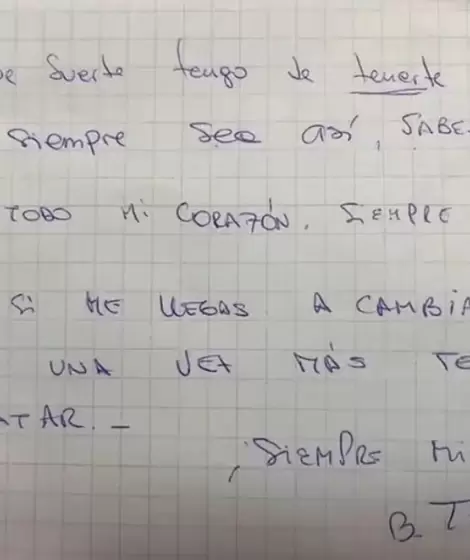 e suerte tengo de tenerte
siempre sea así, SABE
TODO Mi CORAZÓN. SIEMPRE
Si ME LLEGAS A CAMBiA
UNA VEZ MÁS TE
ATAR. -
, SiEMPRE Mi
B. T